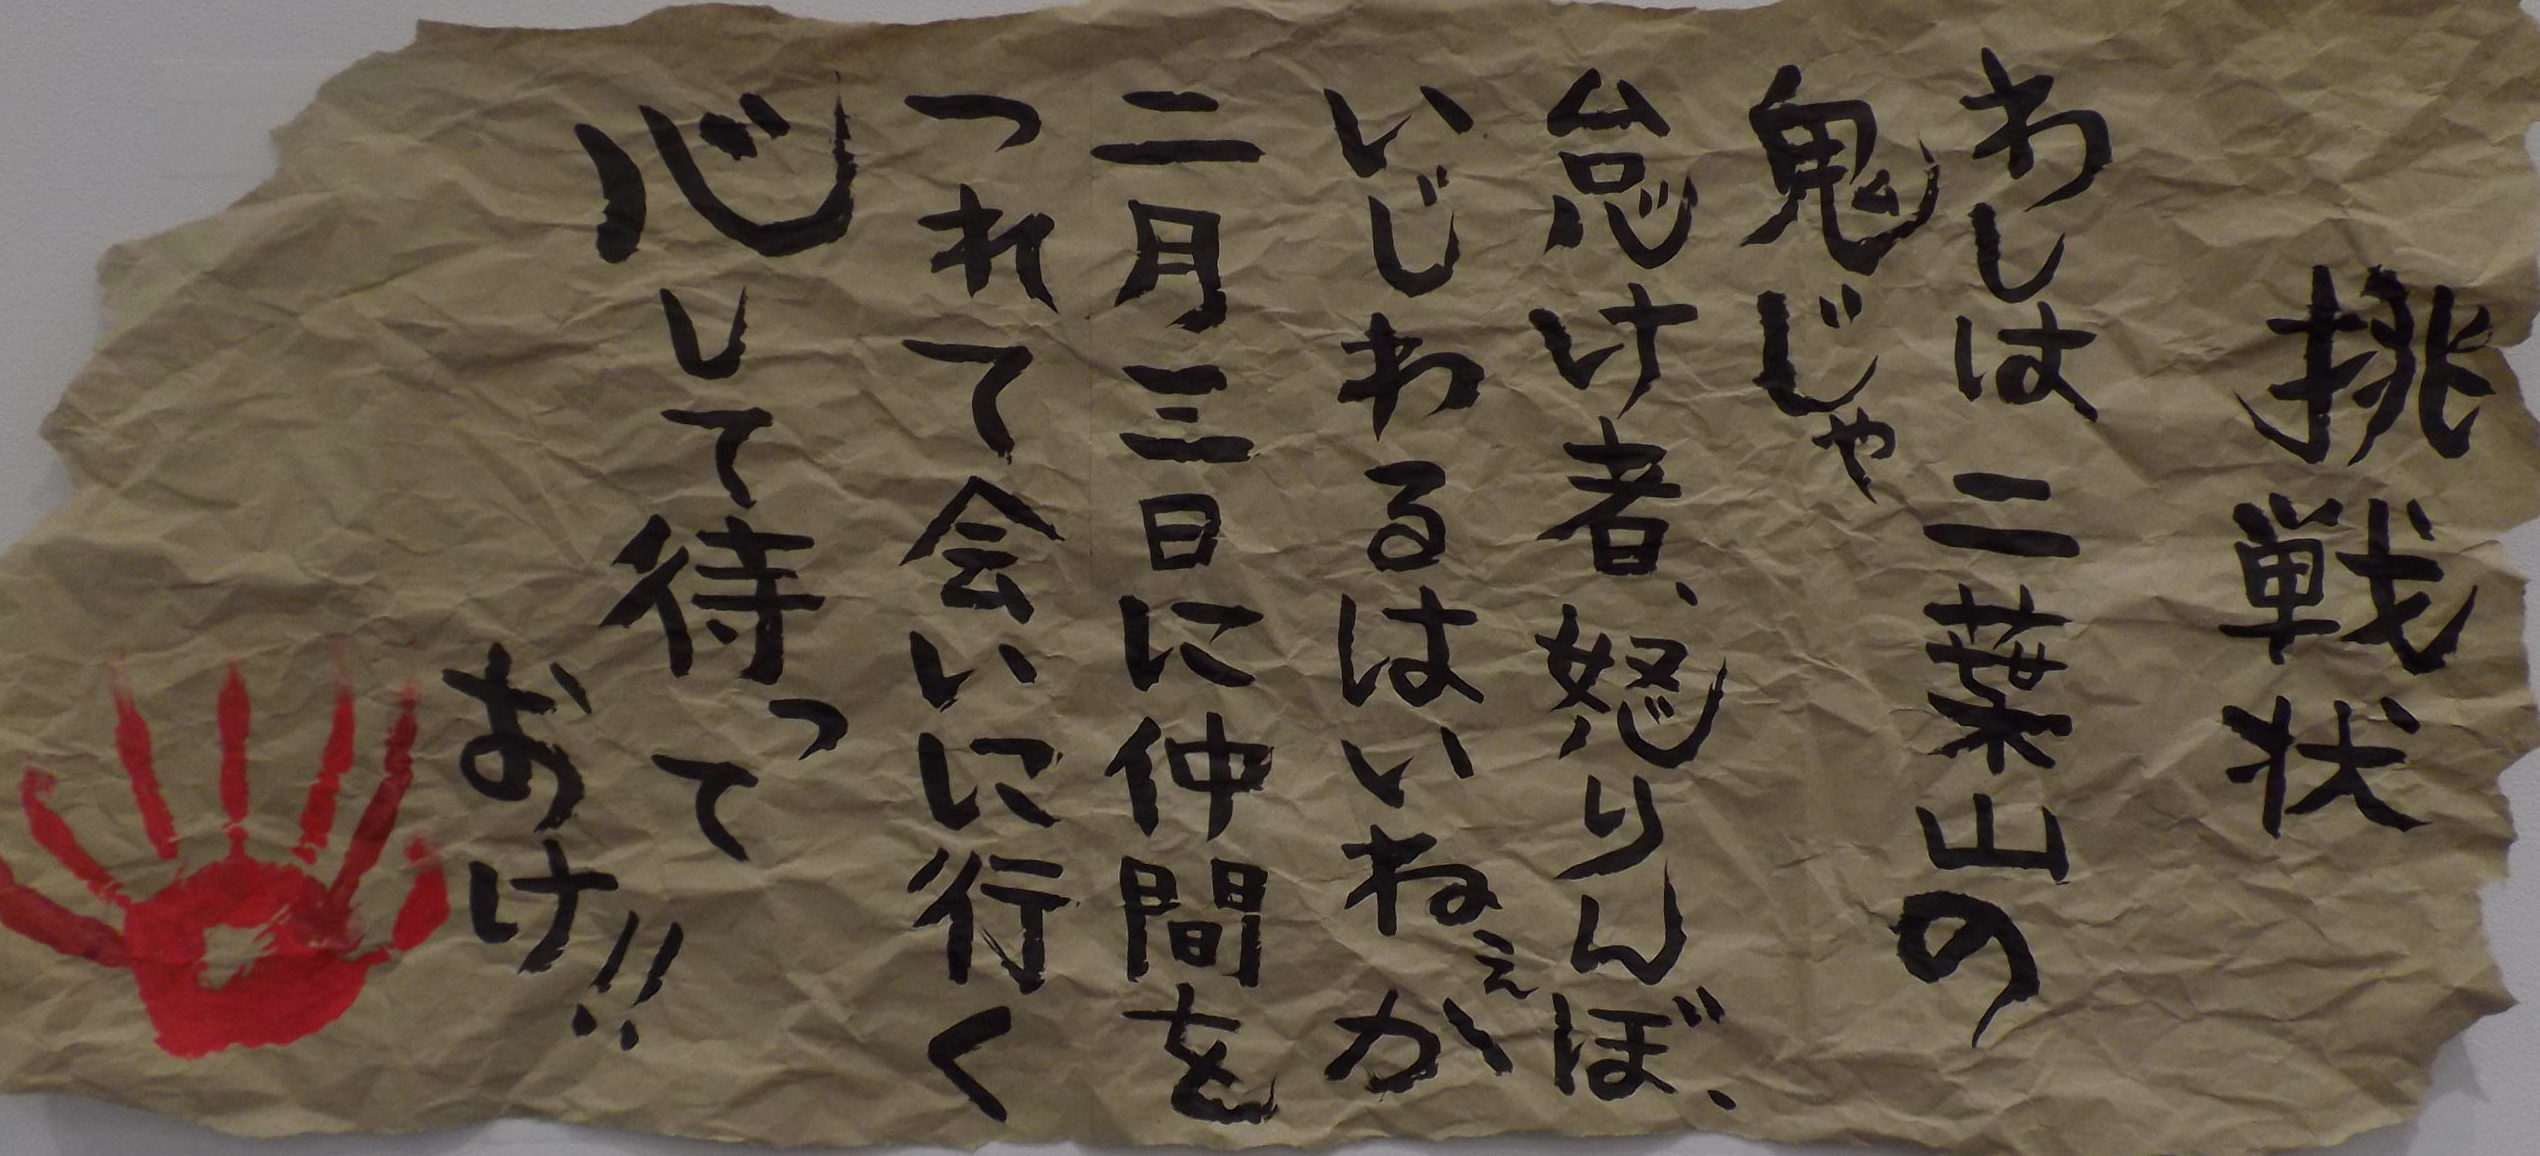 挑戦状
わしは二葉山の
鬼じゃ
怠け者、怒りんぼ、
いじわるはいねぇか
二月三日に仲間を
つれて会いに行く
心して待って
おけ!!